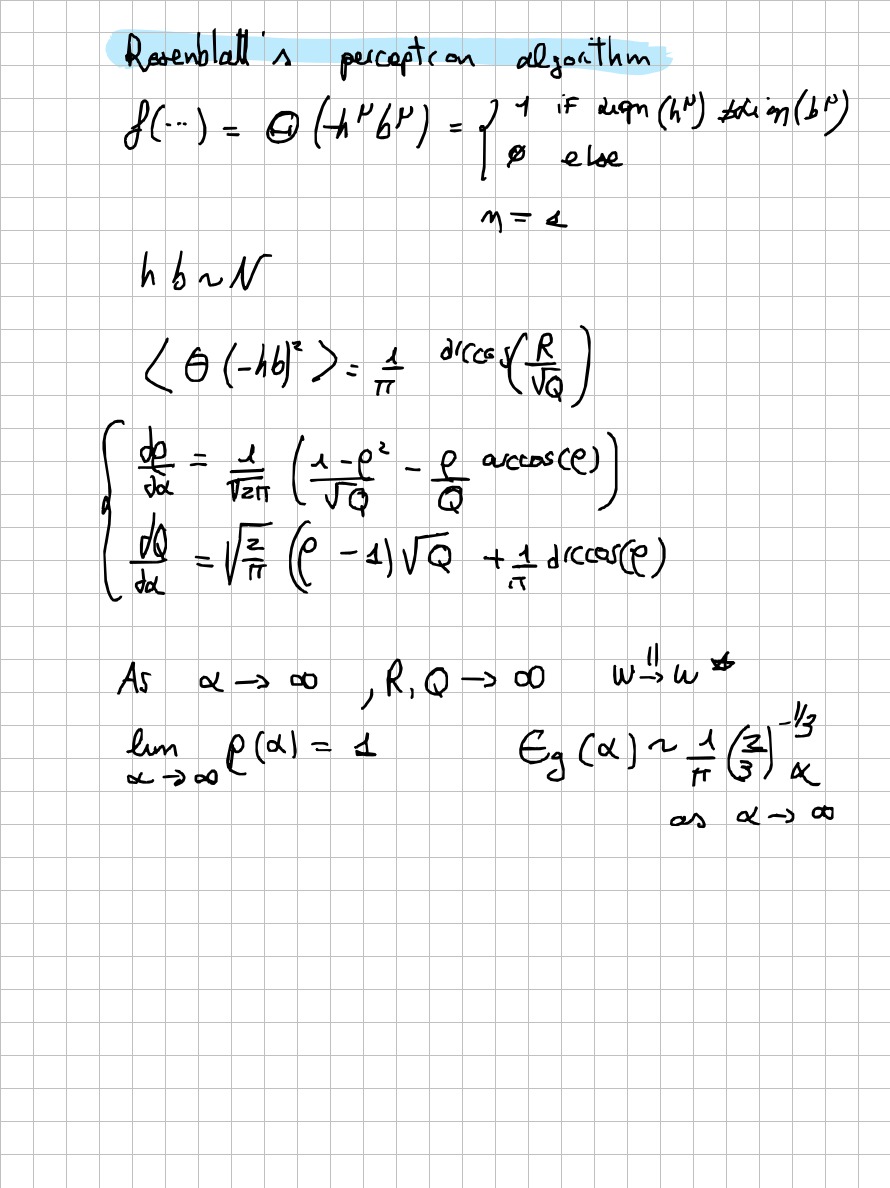 Rosenblatt's perceptron algorithm
f(...) = Θ(-h^μ b^μ) = { 1 if sign(h^μ) ≠ sign(b^μ)
0 else
η = 1
h b ~ N
⟨Θ(-hb)²⟩ = 1/π arccos(R/√Q)
dρ/dα = 1/√2π ((1-ρ²)/√Q - ρ/Q arccos(ρ))
dQ/dα = √(2/π) (ρ - 1)√Q + 1/π arccos(ρ)
As α → ∞ , R, Q → ∞ w ∥→ w*
lim α→∞ ρ(α) = 1 Eg(α) ~ 1/π (2/3) α^(-1/3)
as α → ∞